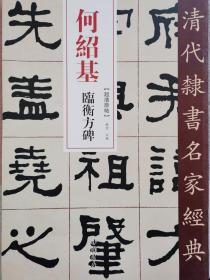 清代隸書名家經典
何紹基
臨衡方碑
【超清原帖】
祖肇
先蓋堯之